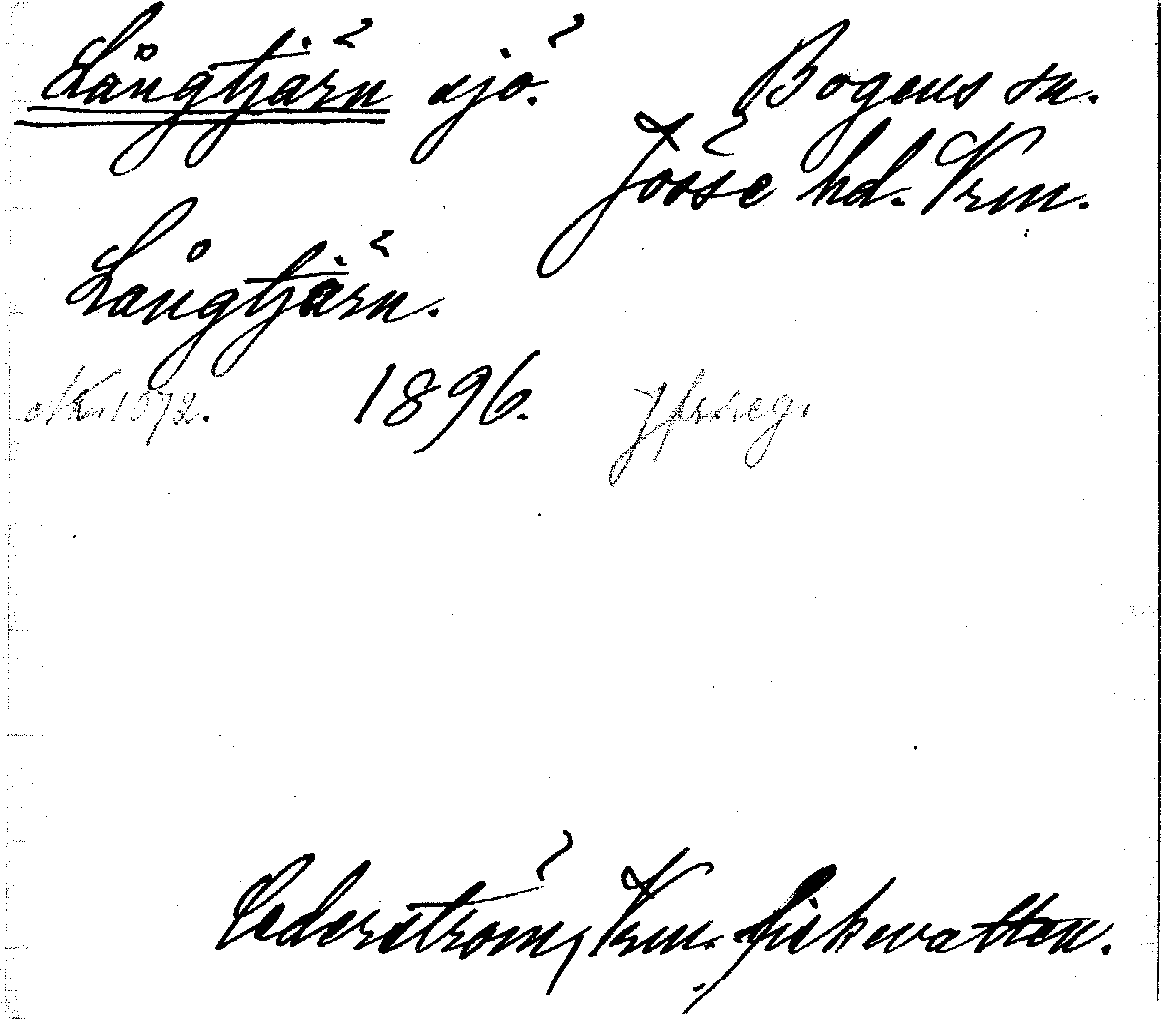 Långtjärn sjö. Bogens sn.
Jösse hd. Vrm.
Långtjärn.
Nr. 1072. 1896. Jfr reg.
Cederström, Vrm. fiskevatten.